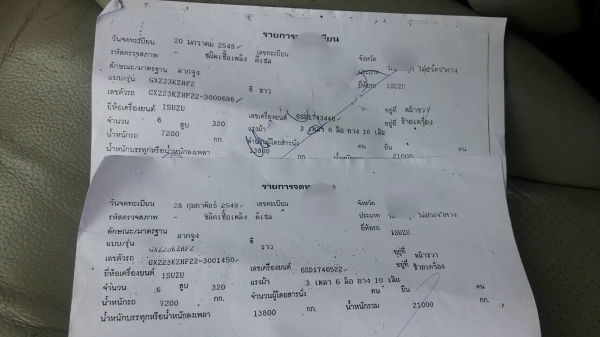 รายการจดทะเบียน
วันจดทะเบียน 20 มกราคม 2549 เลขทะเบียน จังหวัด
รหัสตรวจสภาพ - ชนิดเชื้อเพลิง ดีเซล ประเภท
ลักษณะ/มาตรฐาน ลากจูง ยี่ห้อรถ ISUZU
แบบ/รุ่น GXZ23KZHF2 สี ขาว
เลขตัวรถ GXZ23KZHF22-3000698 อยู่ที่ หน้าขวา
ยี่ห้อเครื่องยนต์ ISUZU เลขเครื่องยนต์ 6SD1743446 อยู่ที่ ซ้ายเครื่อง
จำนวน 6 สูบ 320 แรงม้า 3 เพลา 6 ล้อ ยาง 10 เส้น
น้ำหนักรถ 7200 กก. จำนวนผู้โดยสารนั่ง คน ยืน คน
น้ำหนักบรรทุกหรือน้ำหนักลงเพลา 13800 กก. น้ำหนักรวม 21000 กก.
รายการจดทะเบียน
วันจดทะเบียน 28 กุมภาพันธ์ 2549 เลขทะเบียน จังหวัด
รหัสตรวจสภาพ - ชนิดเชื้อเพลิง ดีเซล ประเภท ไม่ประจำทาง
ลักษณะ/มาตรฐาน ลากจูง ยี่ห้อรถ ISUZU
แบบ/รุ่น GXZ23KZHF2 สี ขาว
เลขตัวรถ GXZ23KZHF22-3001450 อยู่ที่ หน้าขวา
ยี่ห้อเครื่องยนต์ ISUZU เลขเครื่องยนต์ 6SD1746522 อยู่ที่ ซ้ายเครื่อง
จำนวน 6 สูบ 320 แรงม้า 3 เพลา 6 ล้อ ยาง 10 เส้น
น้ำหนักรถ 7200 กก. จำนวนผู้โดยสารนั่ง คน ยืน คน
น้ำหนักบรรทุกหรือน้ำหนักลงเพลา 13800 กก. น้ำหนักรวม 21000 กก.